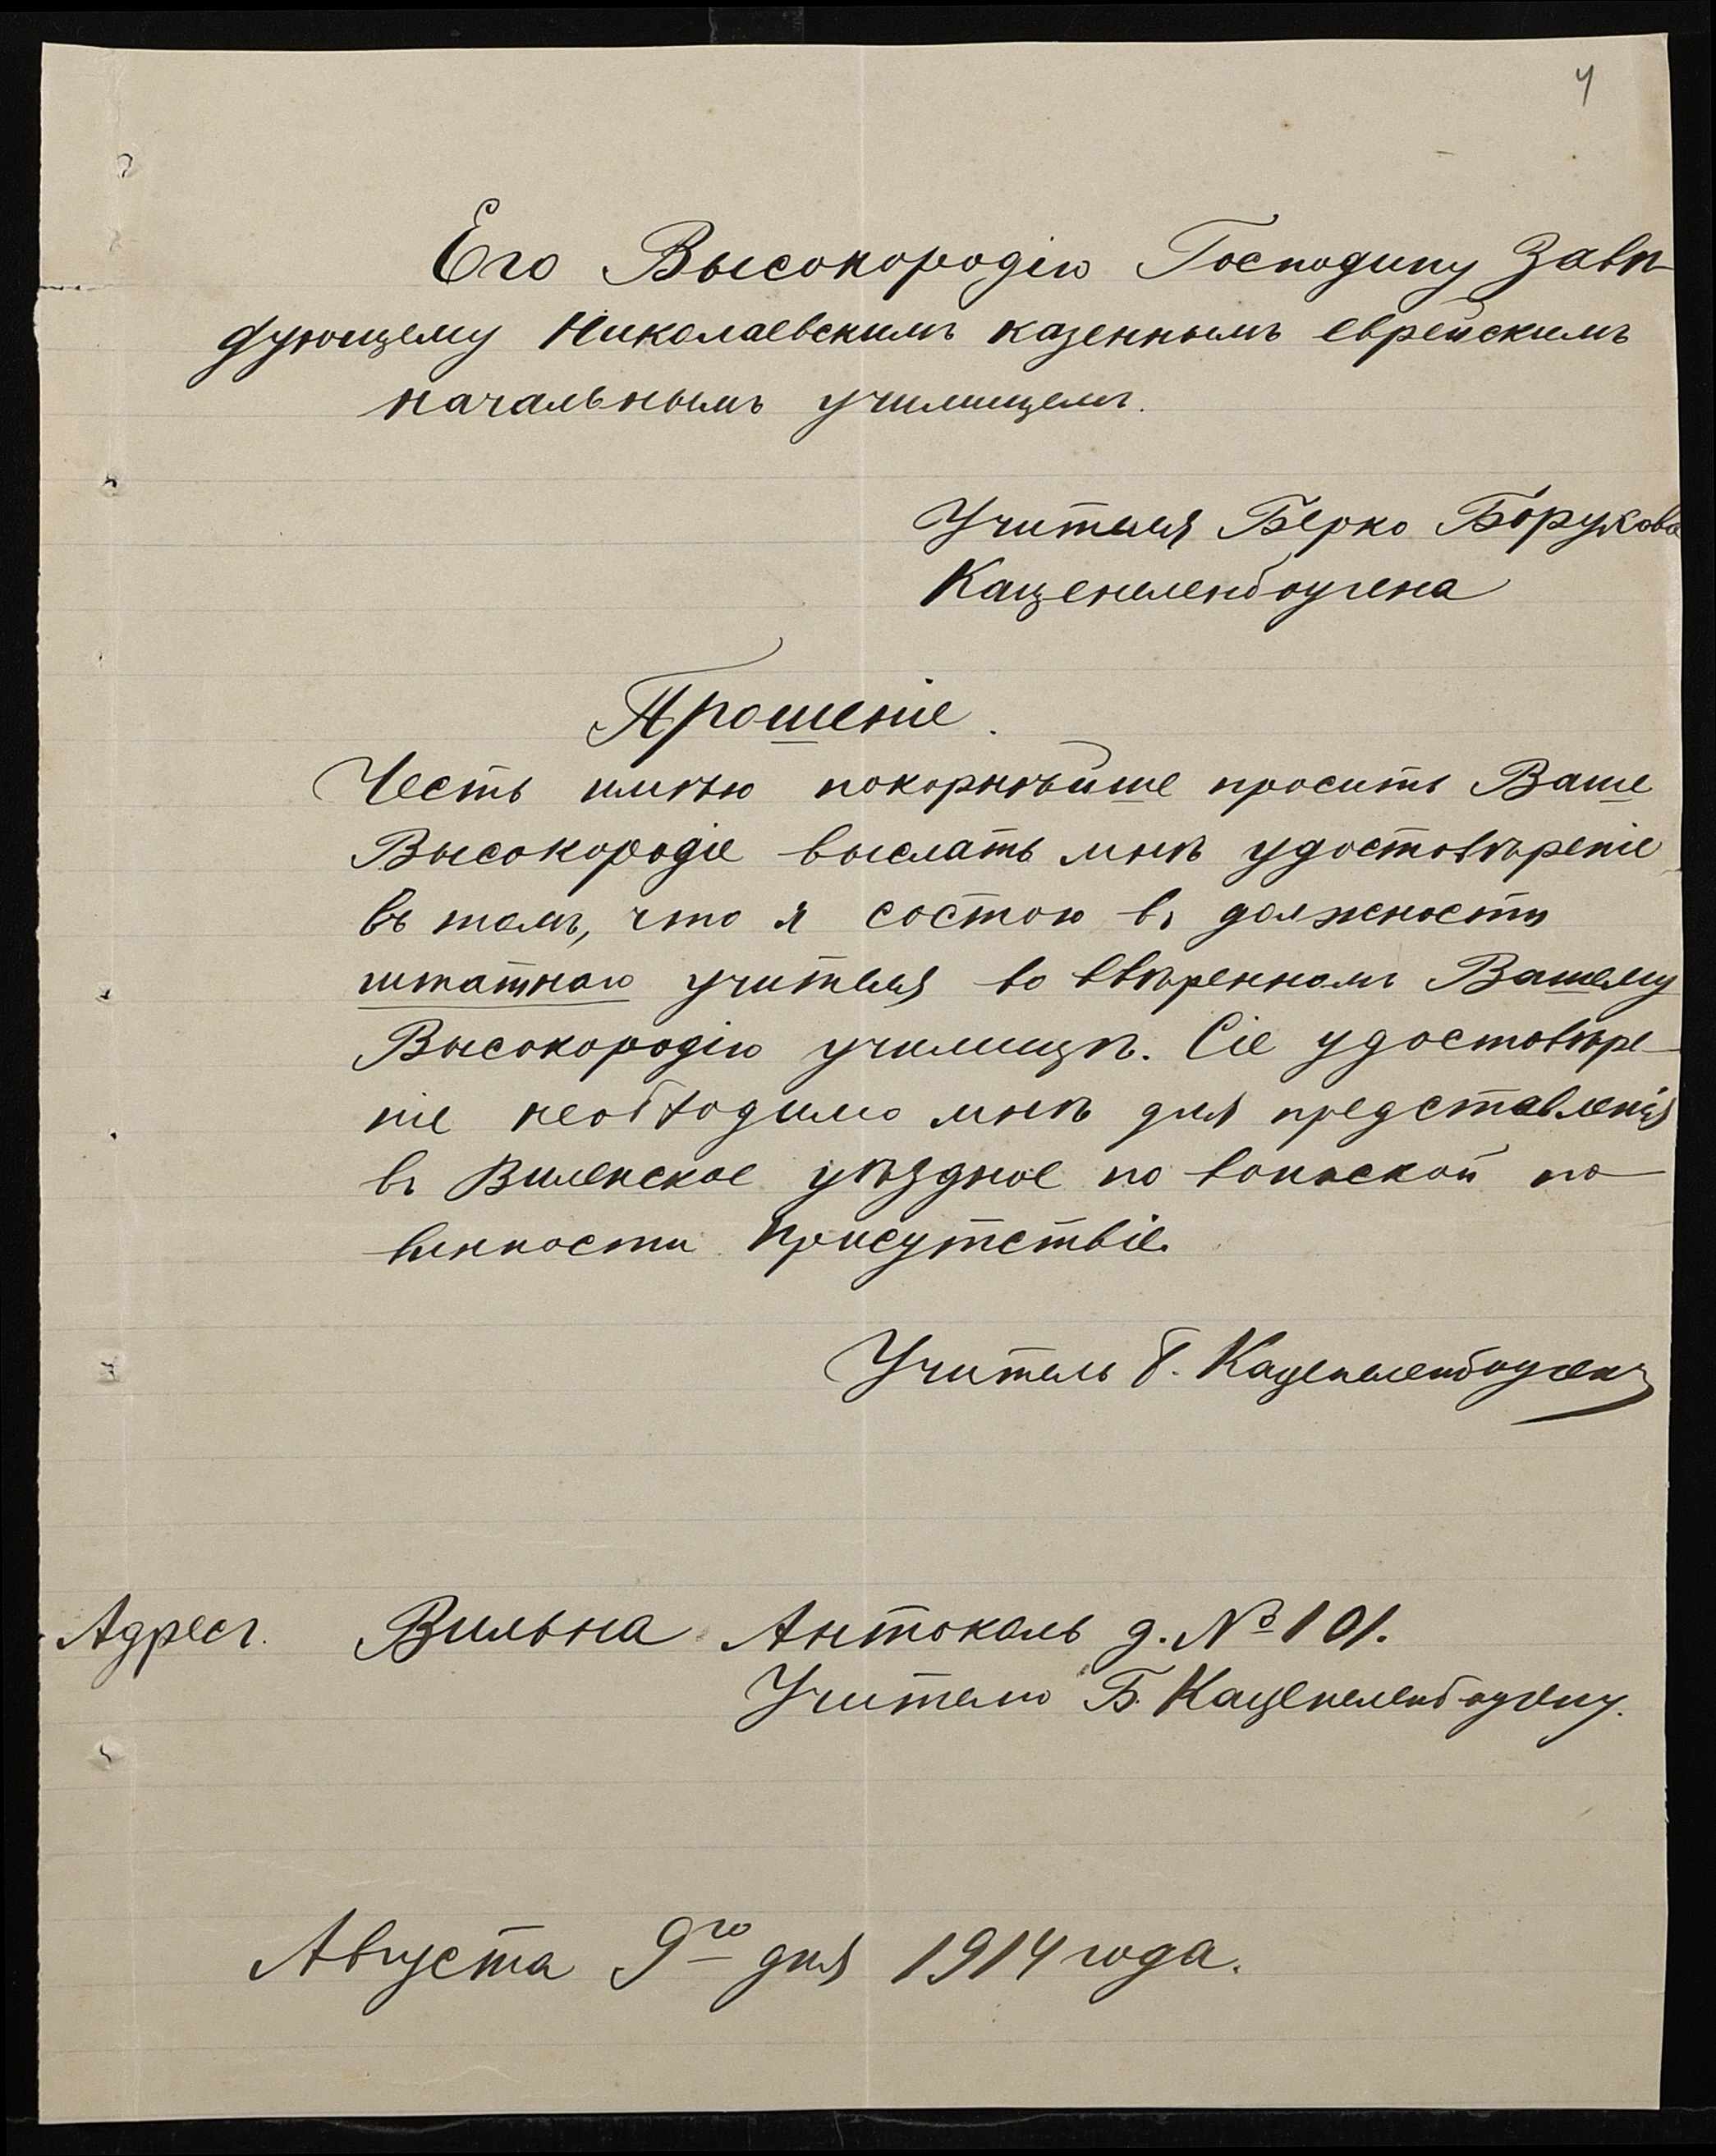 4
Его Высокородію Господину Завѣ-
дующему Николаевскимъ казеннымъ еврейскимъ
начальнымъ училищемъ.
Учителя Берко Борухова
Каценеленбогена
Прошеніе.
Честь имѣю покорнѣйше просить Ваше
Высокородіе выслать мнѣ удостовѣреніе
въ томъ, что я состою въ должности
штатнаго учителя во ввѣренномъ Вашему
Высокородію училищѣ. Сіе удостовѣре-
ніе необходимо мнѣ для представленія
въ Виленское уѣздное по воинской по-
винности присутствіе.
Учитель Б. Каценеленбогенъ
Адресъ. Вильна Антоколь д. № 101.
Учителю Б. Каценеленбогену.
Августа 9го дня 1914 года.